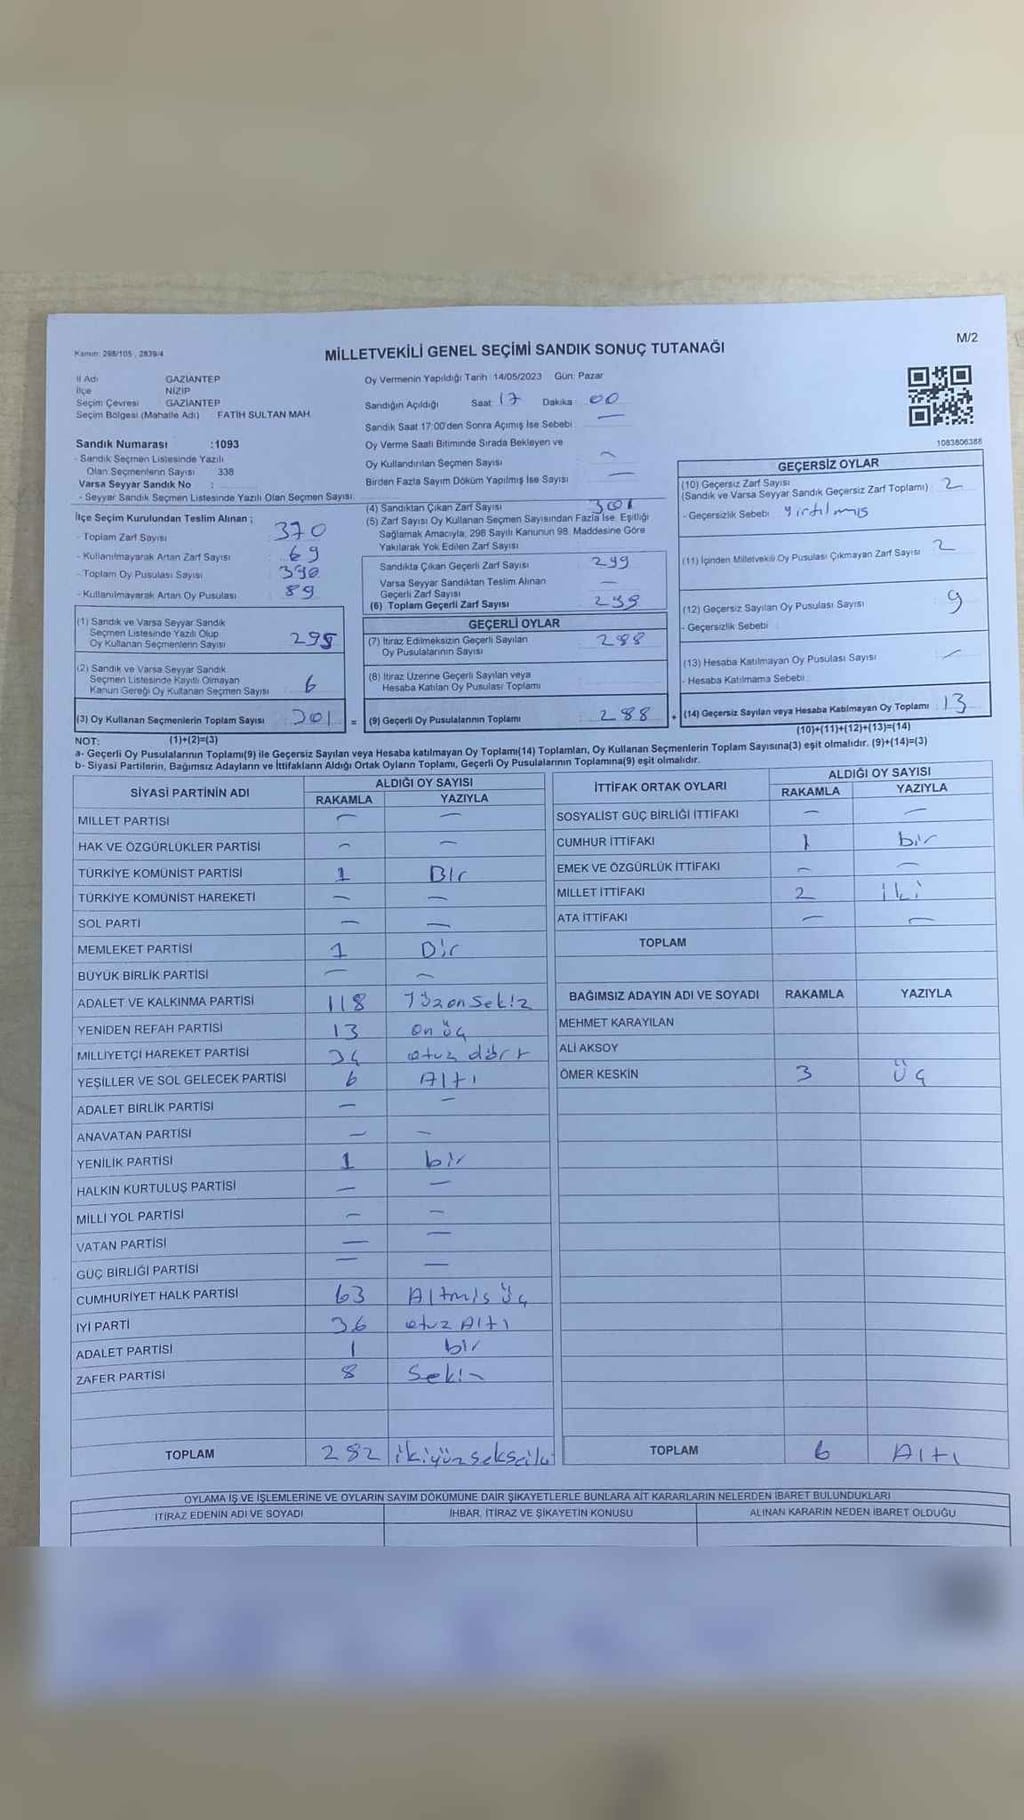 Kanun: 298/105 , 2839/4
MİLLETVEKİLİ GENEL SEÇİMİ SANDIK SONUÇ TUTANAĞI
M/2
İl Adı GAZİANTEP
İlçe NİZİP
Seçim Çevresi GAZİANTEP
Seçim Bölgesi (Mahalle Adı) FATİH SULTAN MAH.
Sandık Numarası :1093
- Sandık Seçmen Listesinde Yazılı
Olan Seçmenlerin Sayısı 338
Varsa Seyyar Sandık No :
- Seyyar Sandık Seçmen Listesinde Yazılı Olan Seçmen Sayısı:
İlçe Seçim Kurulundan Teslim Alınan ;
- Toplam Zarf Sayısı : 370
- Kullanılmayarak Artan Zarf Sayısı : 69
- Toplam Oy Pusulası Sayısı : 390
- Kullanılmayarak Artan Oy Pusulası : 89
(1) Sandık ve Varsa Seyyar Sandık
Seçmen Listesinde Yazılı Olup
Oy Kullanan Seçmenlerin Sayısı 295
(2) Sandık ve Varsa Seyyar Sandık
Seçmen Listesinde Kayıtlı Olmayan
Kanun Gereği Oy Kullanan Seçmen Sayısı 6
(3) Oy Kullanan Seçmenlerin Toplam Sayısı 301 =
(1)+(2)=(3)
Oy Vermenin Yapıldığı Tarih :14/05/2023 Gün: Pazar
Sandığın Açıldığı Saat 17 Dakika 00
Sandık Saat 17:00'den Sonra Açılmış İse Sebebi —
Oy Verme Saati Bitiminde Sırada Bekleyen ve
Oy Kullandırılan Seçmen Sayısı —
Birden Fazla Sayım Döküm Yapılmış İse Sayısı —
(4) Sandıktan Çıkan Zarf Sayısı 301
(5) Zarf Sayısı Oy Kullanan Seçmen Sayısından Fazla İse, Eşitliği
Sağlamak Amacıyla, 298 Sayılı Kanunun 98. Maddesine Göre
Yakılarak Yok Edilen Zarf Sayısı
Sandıkta Çıkan Geçerli Zarf Sayısı 299
Varsa Seyyar Sandıktan Teslim Alınan
Geçerli Zarf Sayısı —
(6) Toplam Geçerli Zarf Sayısı 299
GEÇERLİ OYLAR
(7) İtiraz Edilmeksizin Geçerli Sayılan
Oy Pusulalarının Sayısı 288
(8) İtiraz Üzerine Geçerli Sayılan veya
Hesaba Katılan Oy Pusulası Toplamı
(9) Geçerli Oy Pusulalarının Toplamı 288 +
1083806388
GEÇERSİZ OYLAR
(10) Geçersiz Zarf Sayısı
(Sandık ve Varsa Seyyar Sandık Geçersiz Zarf Toplamı) 2
- Geçersizlik Sebebi: yırtılmış
(11) İçinden Milletvekili Oy Pusulası Çıkmayan Zarf Sayısı 2
(12) Geçersiz Sayılan Oy Pusulası Sayısı 9
- Geçersizlik Sebebi :
(13) Hesaba Katılmayan Oy Pusulası Sayısı —
- Hesaba Katılmama Sebebi :
(14) Geçersiz Sayılan veya Hesaba Katılmayan Oy Toplamı 13
(10)+(11)+(12)+(13)=(14)
NOT:
a- Geçerli Oy Pusulalarının Toplamı(9) ile Geçersiz Sayılan veya Hesaba katılmayan Oy Toplamı(14) Toplamları, Oy Kullanan Seçmenlerin Toplam Sayısına(3) eşit olmalıdır. (9)+(14)=(3)
b- Siyasi Partilerin, Bağımsız Adayların ve İttifakların Aldığı Ortak Oyların Toplamı, Geçerli Oy Pusulalarının Toplamına(9) eşit olmalıdır.
SİYASİ PARTİNİN ADI ALDIĞI OY SAYISI
RAKAMLA YAZIYLA
MİLLET PARTİSİ — —
HAK VE ÖZGÜRLÜKLER PARTİSİ — —
TÜRKİYE KOMÜNİST PARTİSİ 1 Bir
TÜRKİYE KOMÜNİST HAREKETİ — —
SOL PARTİ — —
MEMLEKET PARTİSİ 1 Bir
BÜYÜK BİRLİK PARTİSİ — —
ADALET VE KALKINMA PARTİSİ 118 Yüzonsekiz
YENİDEN REFAH PARTİSİ 13 on üç
MİLLİYETÇİ HAREKET PARTİSİ 34 otuz dört
YEŞİLLER VE SOL GELECEK PARTİSİ 6 Altı
ADALET BİRLİK PARTİSİ — —
ANAVATAN PARTİSİ — —
YENİLİK PARTİSİ 1 bir
HALKIN KURTULUŞ PARTİSİ — —
MİLLİ YOL PARTİSİ — —
VATAN PARTİSİ — —
GÜÇ BİRLİĞİ PARTİSİ — —
CUMHURİYET HALK PARTİSİ 63 Altmıs üç
İYİ PARTİ 36 otuz Altı
ADALET PARTİSİ 1 bir
ZAFER PARTİSİ 8 Sekiz
TOPLAM 282
İTTİFAK ORTAK OYLARI ALDIĞI OY SAYISI
RAKAMLA YAZIYLA
SOSYALİST GÜÇ BİRLİĞİ İTTİFAKI — —
CUMHUR İTTİFAKI 1 bir
EMEK VE ÖZGÜRLÜK İTTİFAKI — —
MİLLET İTTİFAKI 2 iki
ATA İTTİFAKI — —
TOPLAM
BAĞIMSIZ ADAYIN ADI VE SOYADI RAKAMLA YAZIYLA
MEHMET KARAYILAN
ALİ AKSOY
ÖMER KESKİN 3 üç
TOPLAM 6 Altı
OYLAMA İŞ VE İŞLEMLERİNE VE OYLARIN SAYIM DÖKÜMÜNE DAİR ŞİKAYETLERLE BUNLARA AİT KARARLARIN NELERDEN İBARET BULUNDUKLARI
İTİRAZ EDENİN ADI VE SOYADI İHBAR, İTİRAZ VE ŞİKAYETİN KONUSU ALINAN KARARIN NEDEN İBARET OLDUĞU